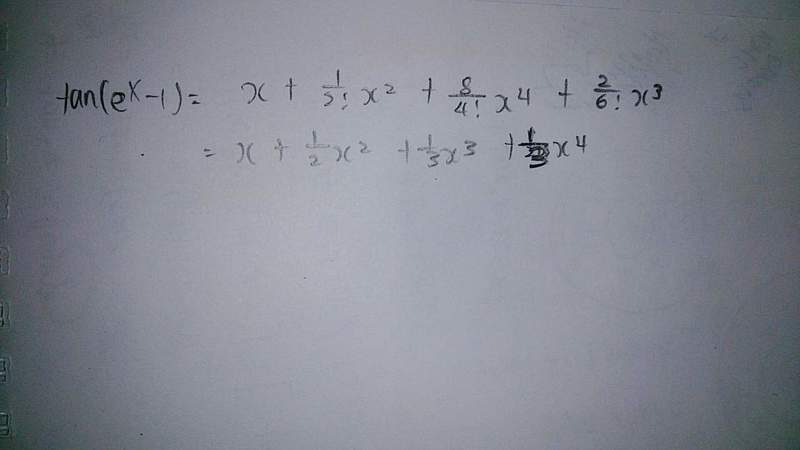 tan(e^x-1) = x + 1/2! x^2 + 8/4! x^4 + 2/6! x^3
= x + 1/2 x^2 + 1/3 x^3 + 1/3 x^4